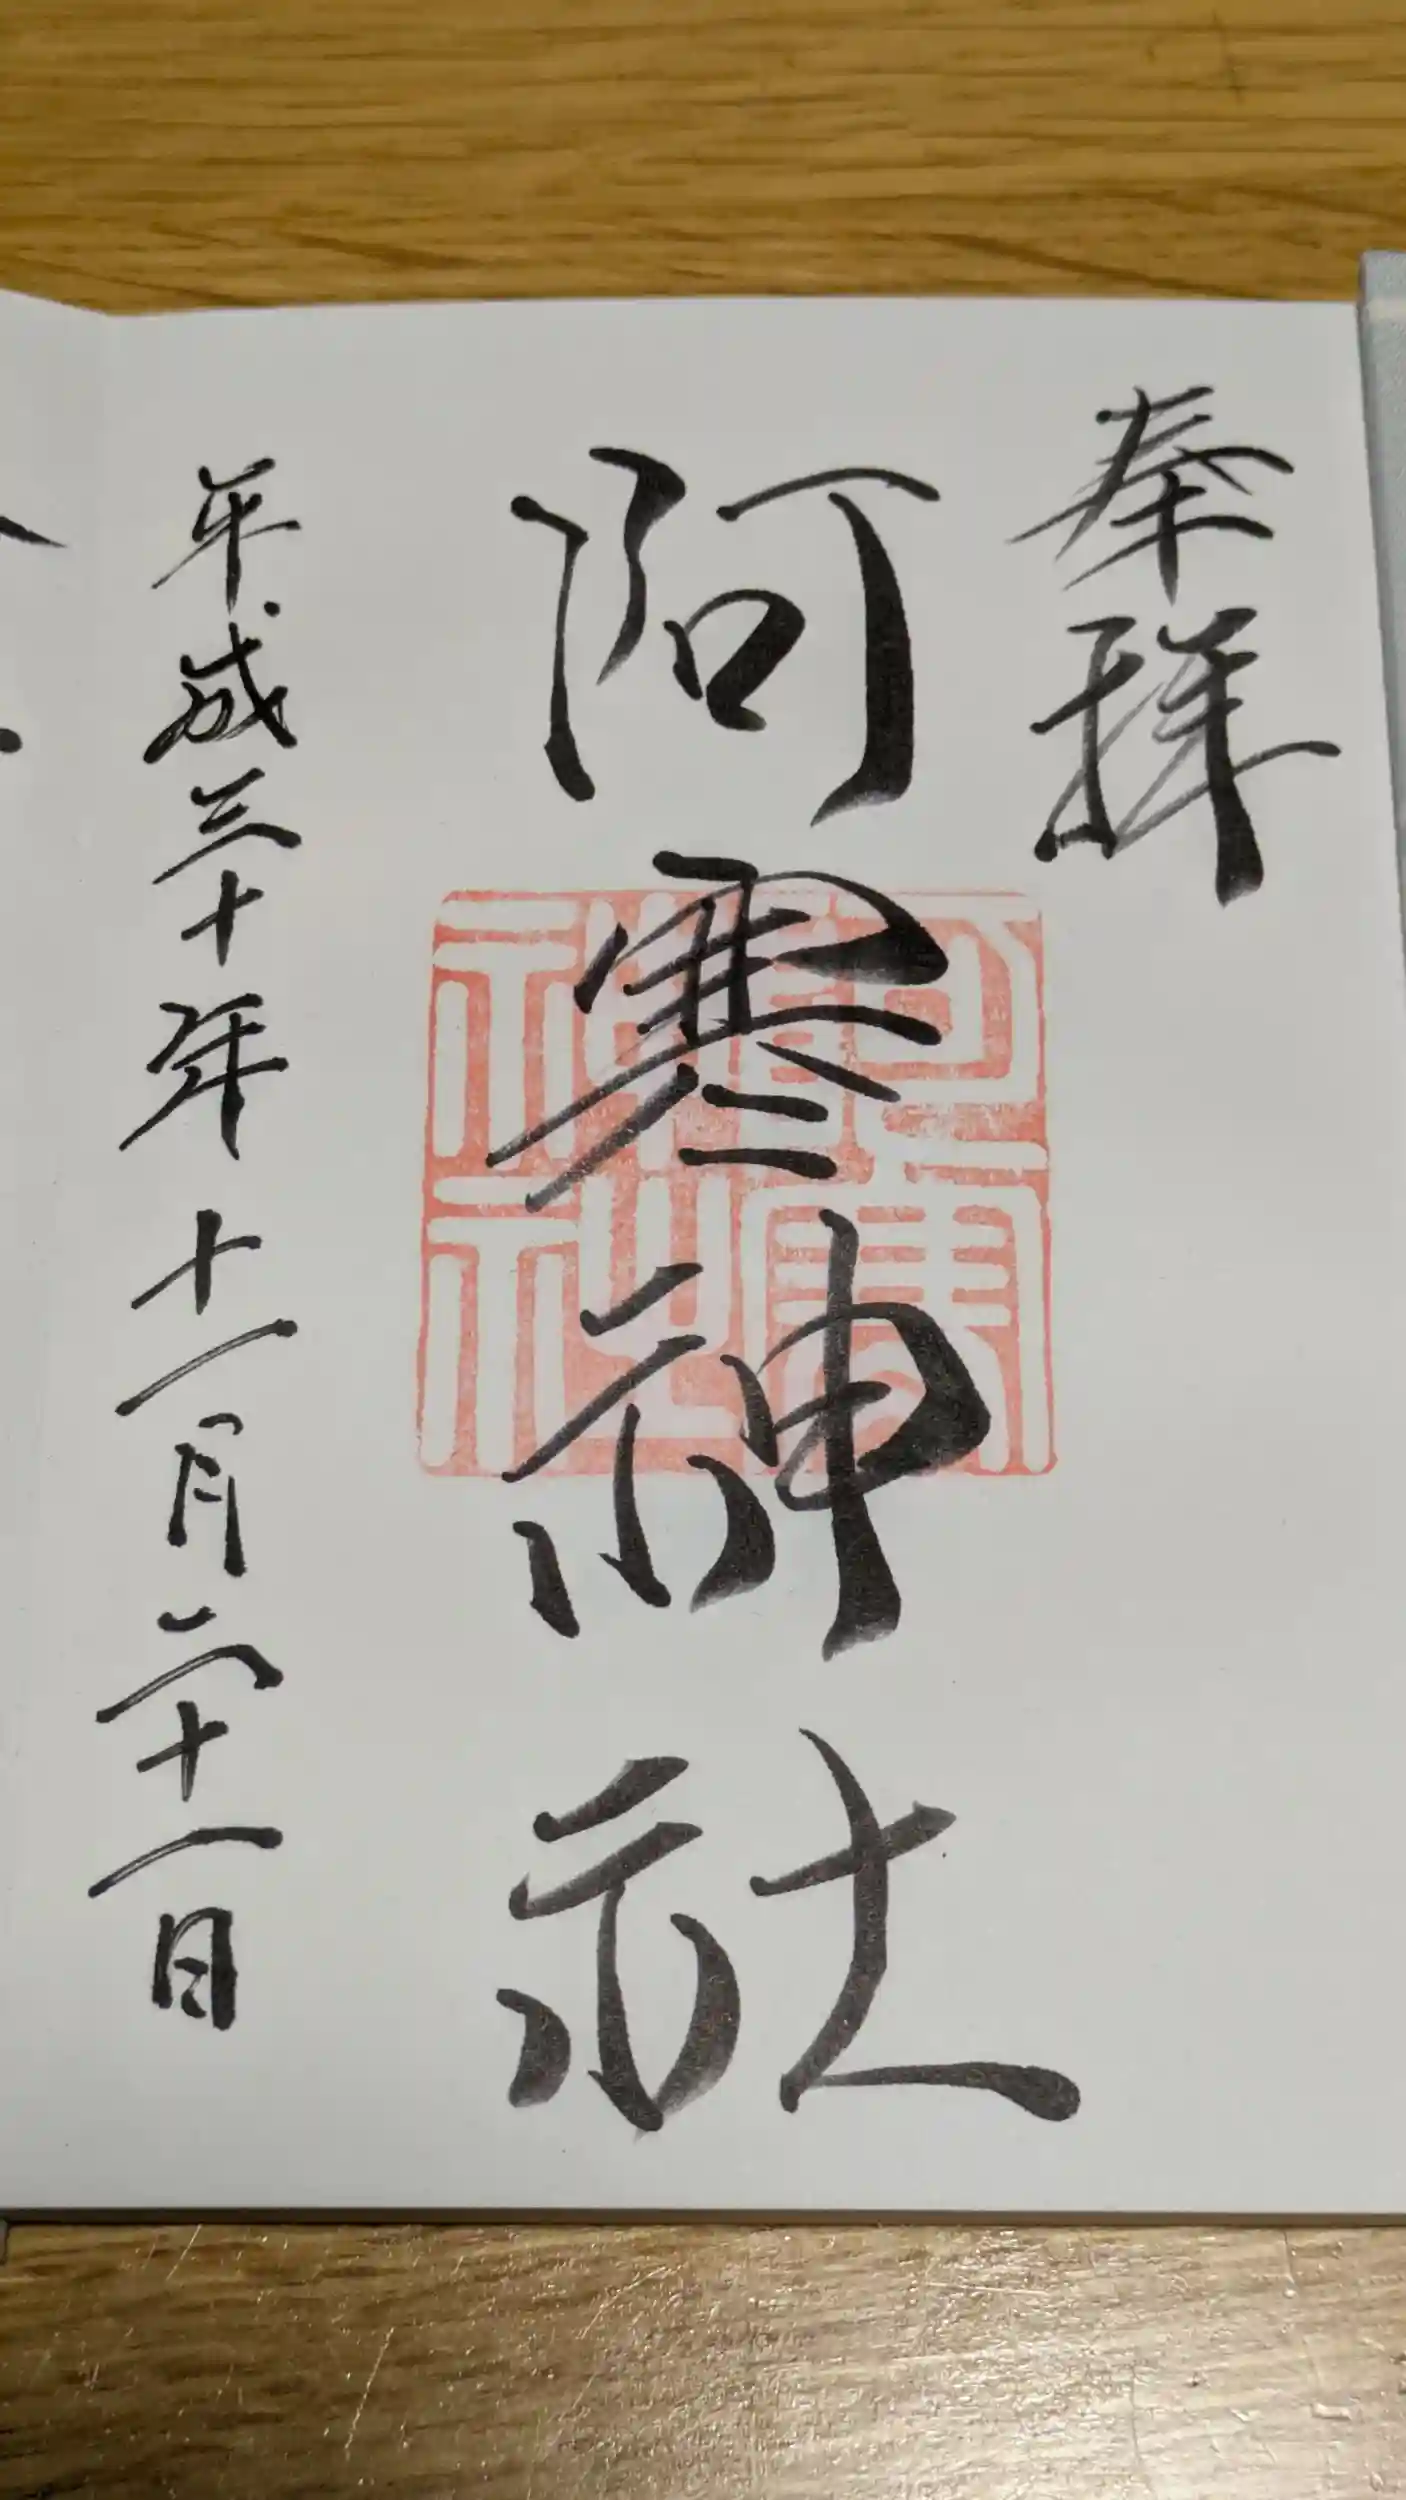 奉拝
阿寒神社
阿寒神社
平成三十年十一月二十一日